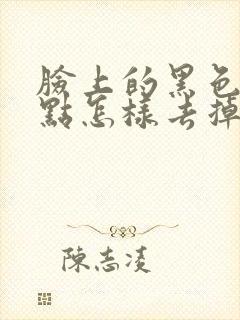 臉上的黑色
點怎樣去掉
陳志凌